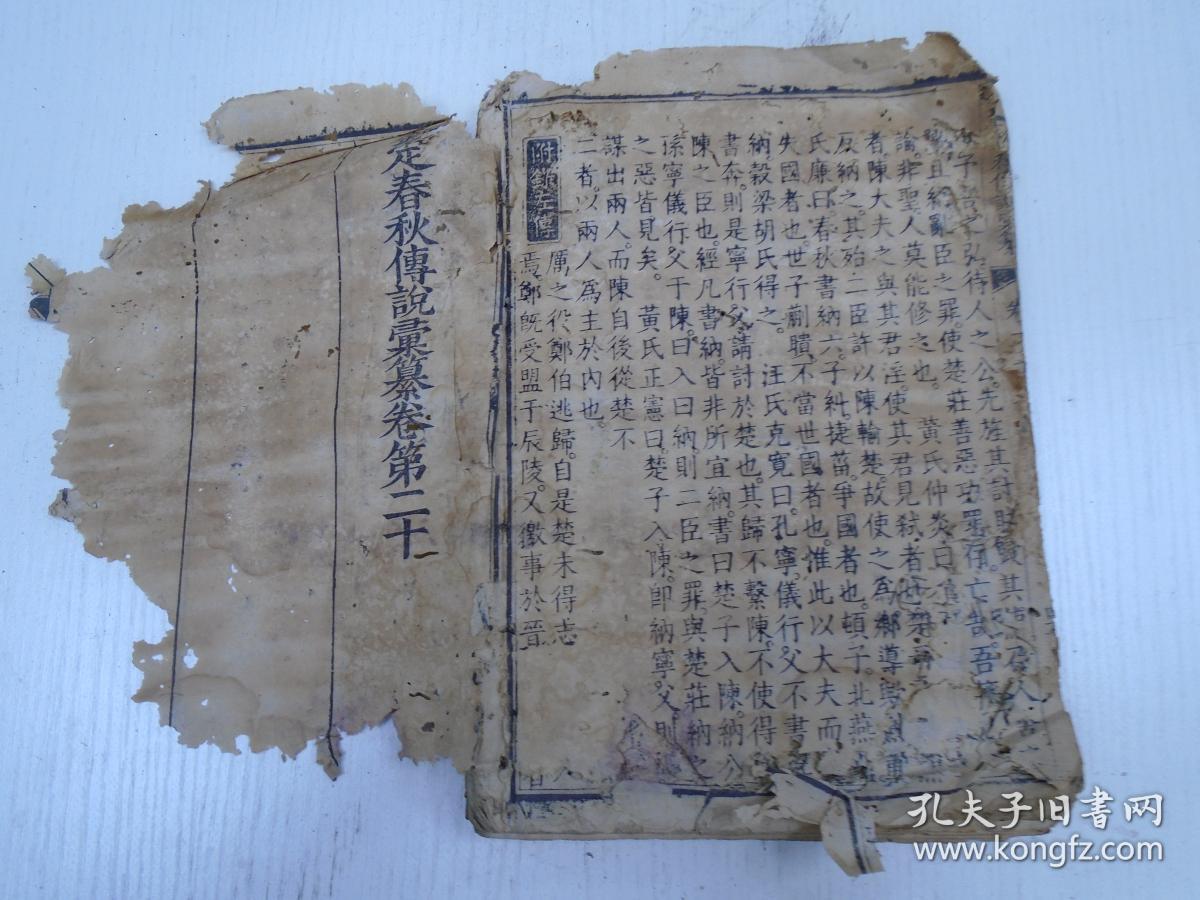 子諱之弘待人之公先旌其討賊
且納亂臣之罪使楚莊善惡功罪
論非聖人莫能修之也黃氏仲炎曰
者陳大夫之與其君淫使其君見弒者也
反納之其殆二臣許以陳輸楚故使之爲鄉導
氏廉曰春秋書納六子糾捷菑爭國者也頓子北燕
失國者也世子蒯聵不當世國者也惟此以大夫而
納穀梁胡氏得之汪氏克寬曰孔寧儀行父不書
書奔則是寧行父請討於楚也其歸不繫陳不使得
陳之臣也經凡書納皆非所宜納書曰楚子入陳納公
孫寧儀行父于陳曰入曰納則二臣之罪與楚莊納之
之惡皆見矣黃氏正憲曰楚子入陳即納寧父則
謀出兩人而陳自後從楚不
二者以兩人爲主於內也
附錄左傳
厲之役鄭伯逃歸自是楚未得志
焉鄭既受盟于辰陵又徼事於晉
定春秋傳說彙纂卷第二十
孔夫子旧书网
www.kongfz.com